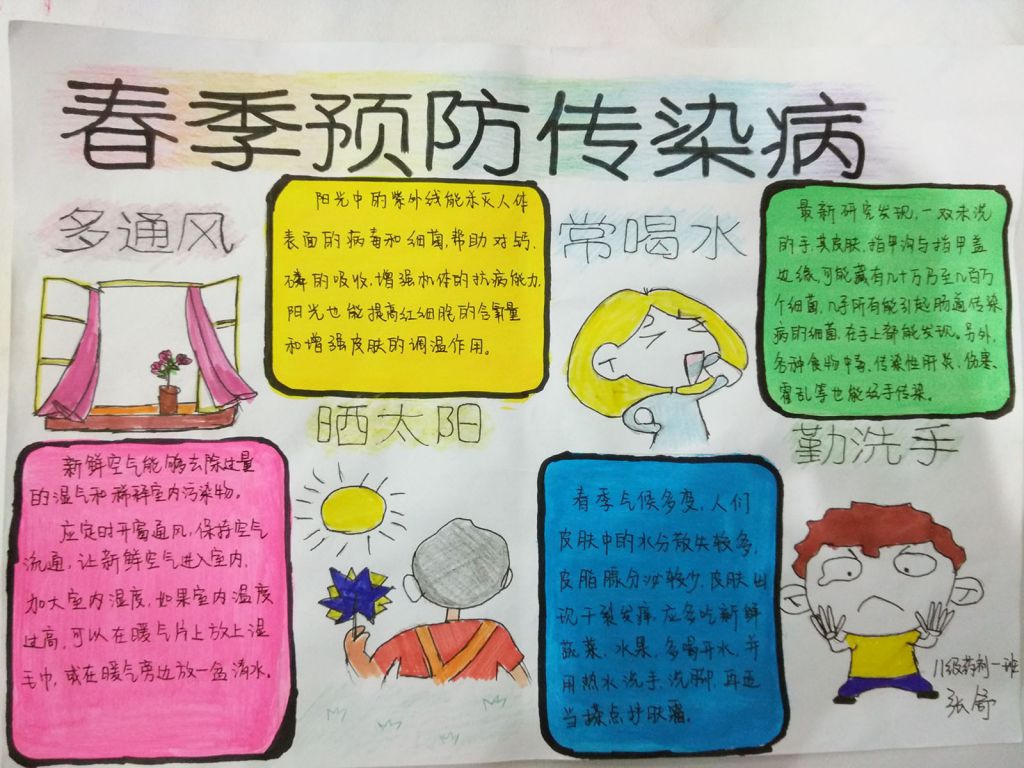 春季预防传染病
多通风
新鲜空气能够去除过量
的湿气和稀释室内污染物。
应定时开窗通风,保持空气
流通,让新鲜空气进入室内,
加大室内湿度,如果室内温度
过高,可以在暖气片上放上湿
毛巾,或在暖气旁边放一盆清水。
阳光中的紫外线能杀灭人体
表面的病毒和细菌,帮助对钙、
磷的吸收,增强机体的抗病能力,
阳光也能提高红细胞的含氧量
和增强皮肤的调温作用。
晒太阳
常喝水
春季气候多变,人们
皮肤中的水分散失较多,
皮脂腺分泌较少,皮肤出
现干裂发痒,应多吃新鲜
蔬菜、水果,多喝开水,并
用热水洗手、洗脚,再适
当搽点护肤霜。
最新研究发现,一双未洗
的手,其皮肤、指甲沟与指甲盖
边缘,可能藏有几十万乃至几百万
个细菌,几乎所有能引起肠道传染
病的细菌,在手上都能发现。另外,
各种食物中毒、传染性肝炎、伤寒、
霍乱等也能经手传染。
勤洗手
11级药剂一班
张舒